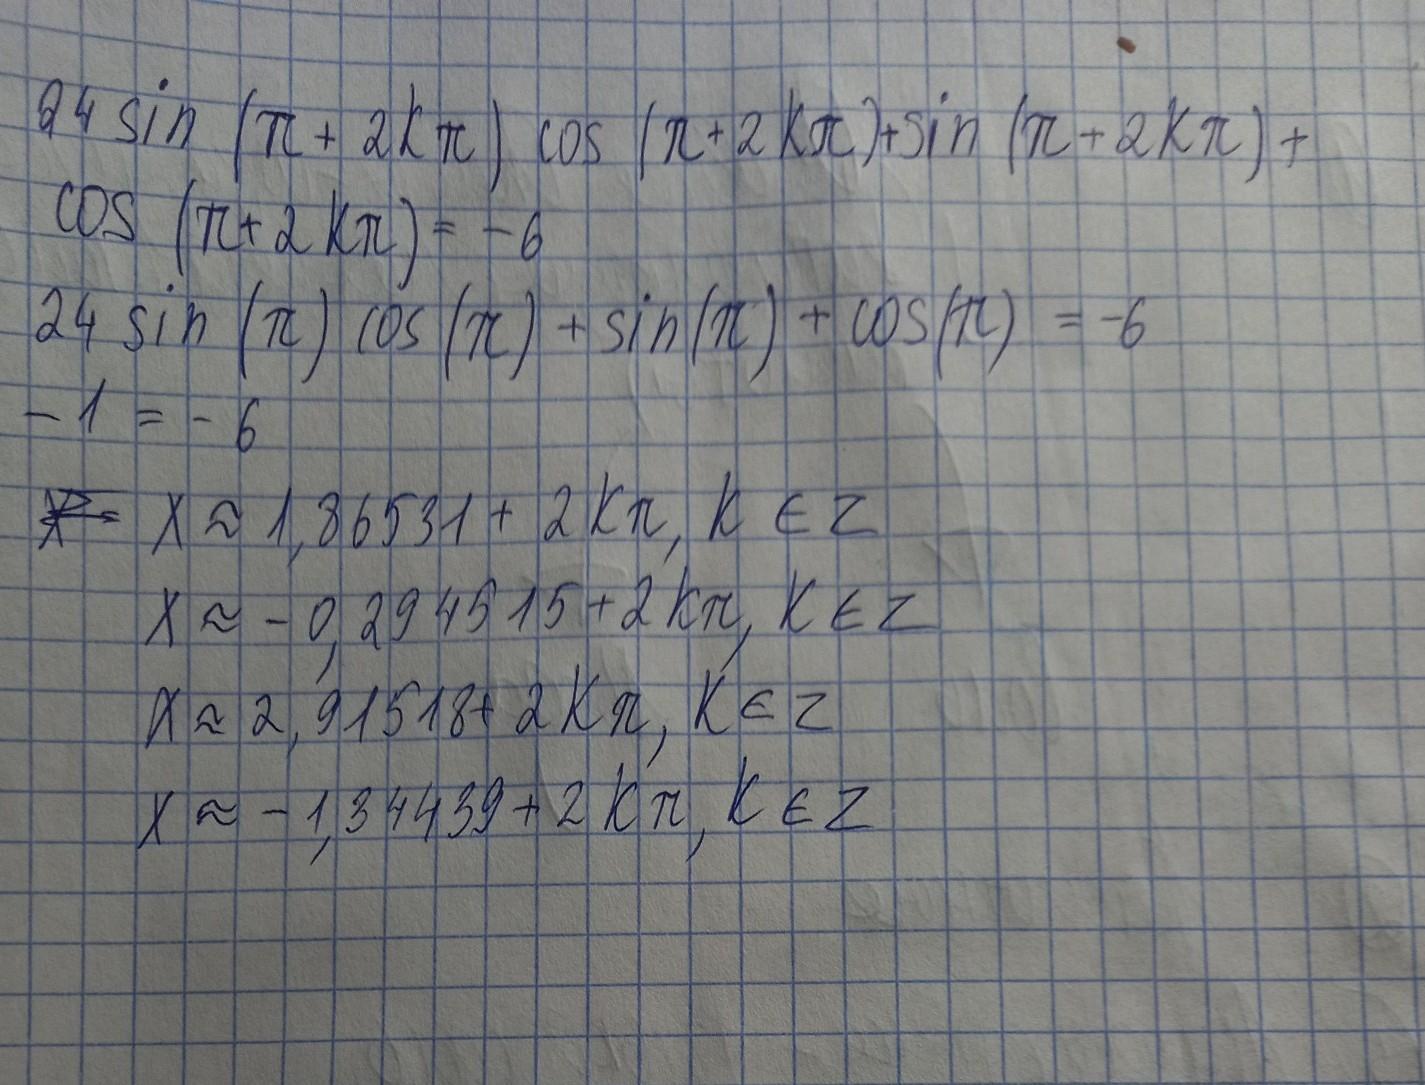 24 sin (π + 2kπ) cos (π+2kπ)+sin (π + 2kπ) +
cos (π+2kπ) = -6
24 sin (π) cos (π) + sin(π) + cos(π) = -6
-1 = -6
x ≈ 1,86531 + 2kπ, k ∈ Z
x ≈ -0,294515 + 2kπ, k ∈ Z
x ≈ 2,91518 + 2kπ, k ∈ Z
x ≈ -1,34439 + 2kπ, k ∈ Z